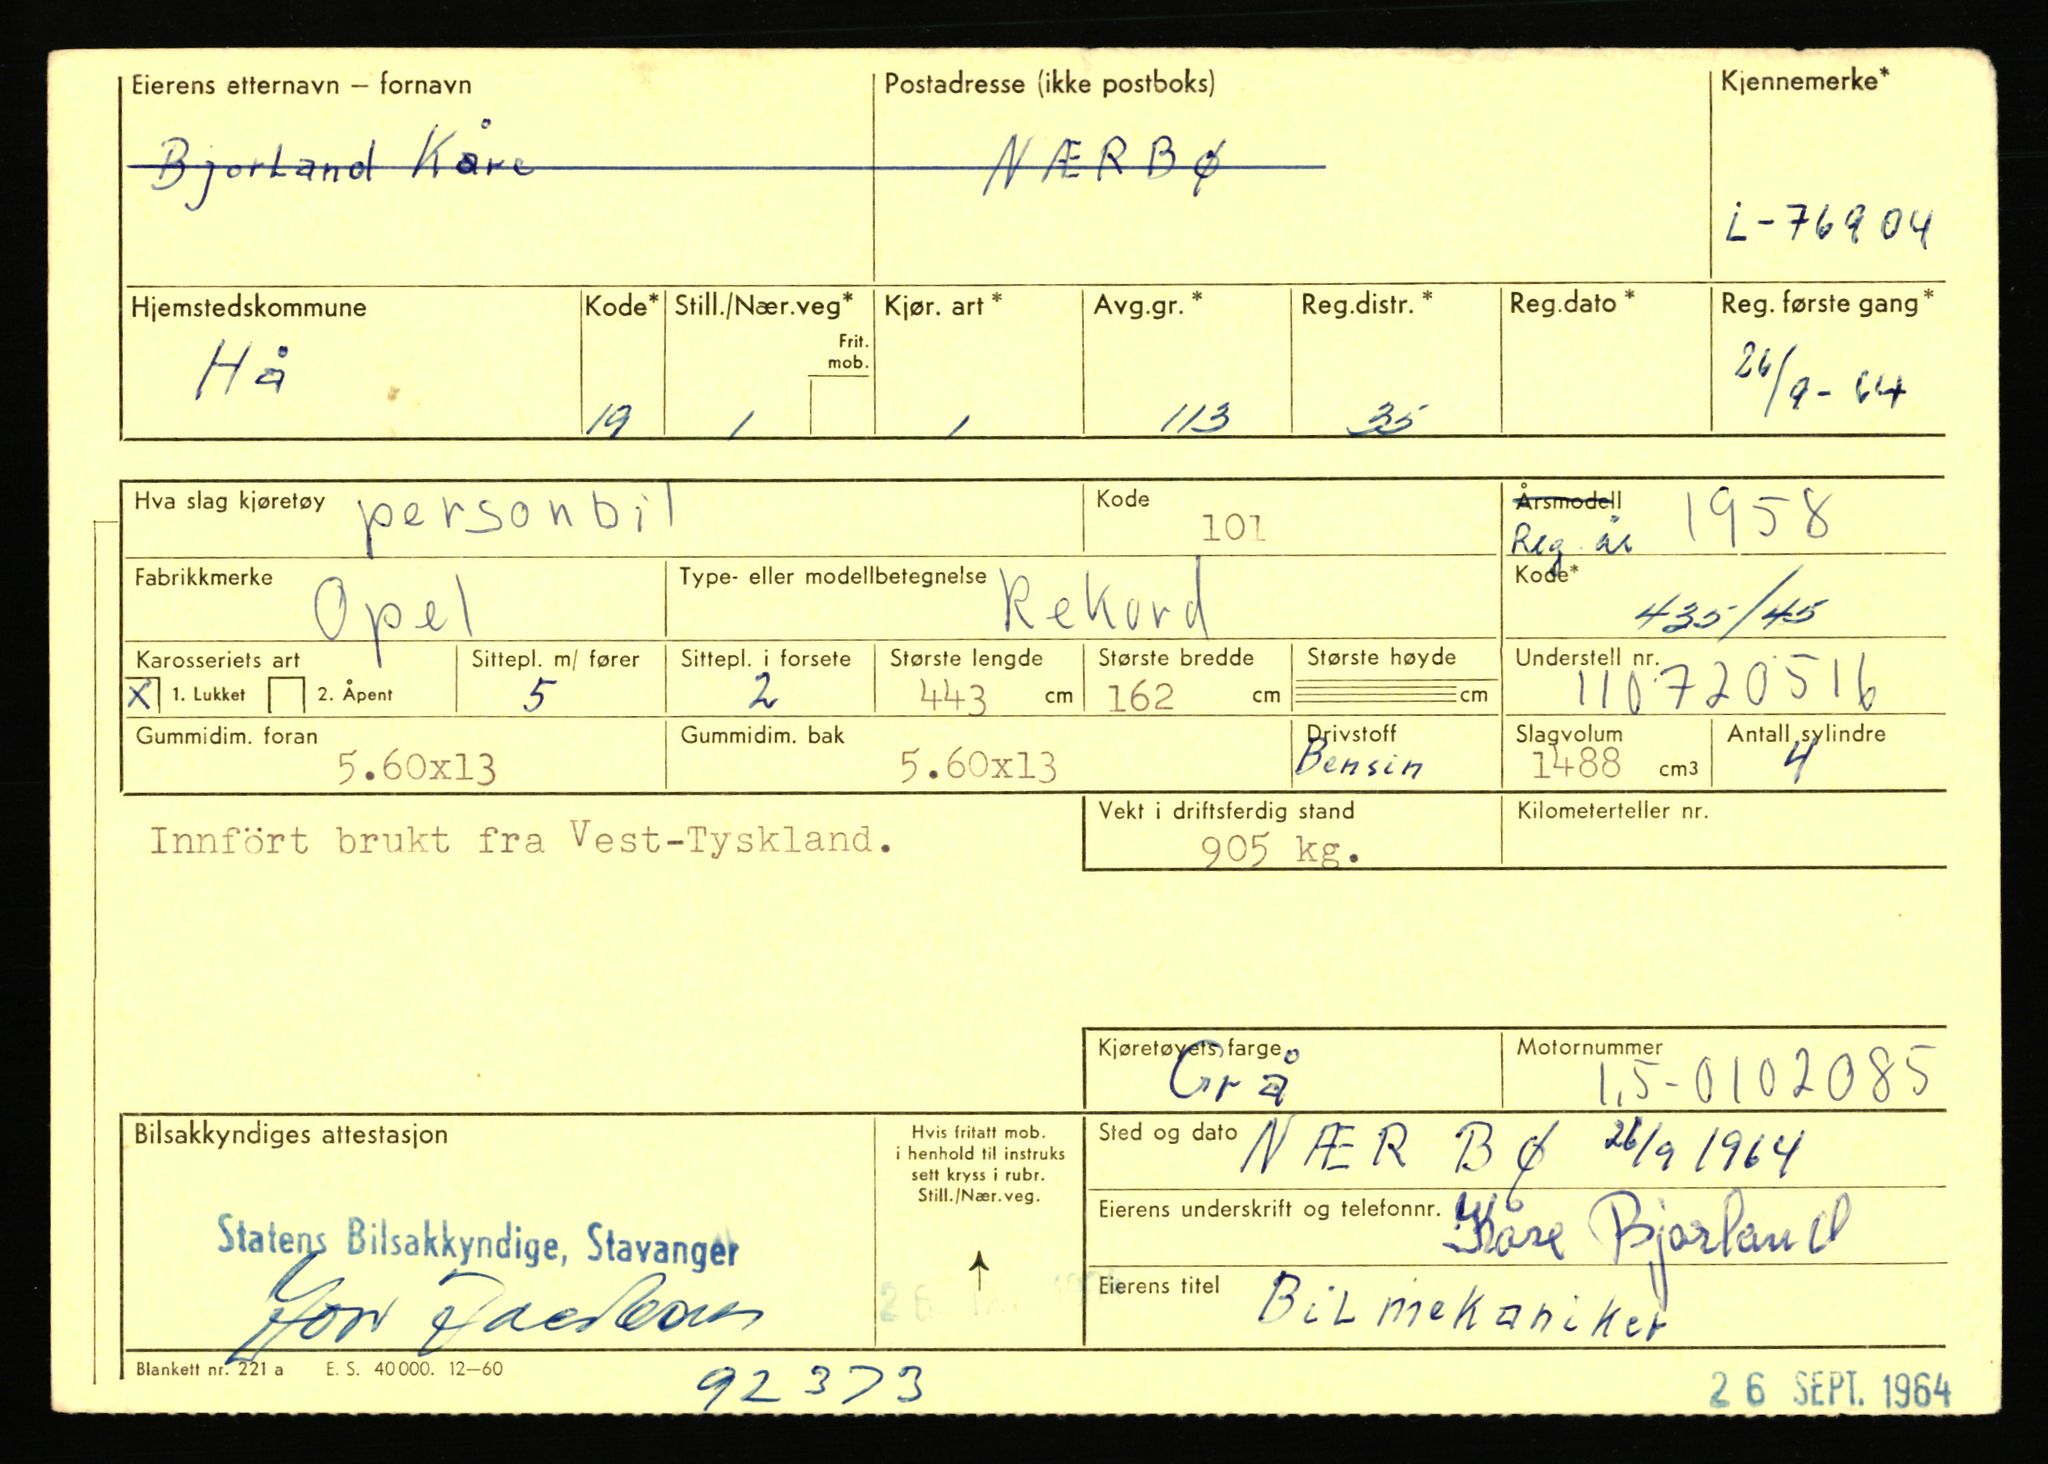 Eierens etternavn – fornavn Postadresse (ikke postboks) Kjennemerke*
Bjorland Kåre NÆRBØ
L-76904
Hjemstedskommune Kode* Still./Nær.veg* Kjør. art* Avg.gr.* Reg.distr.* Reg.dato* Reg. første gang*
Frit.
mob.
Hå 19 1 1 113 35 26/9-64
Hva slag kjøretøy personbil Kode 101 Årsmodell 1958
Reg år
Fabrikkmerke Opel Type- eller modellbetegnelse Rekord Kode* 435/45
Karosseriets art Sittepl. m/ fører Sittepl. i forsete Største lengde Største bredde Største høyde Understell nr.
X 1. Lukket 2. Åpent 5 2 443 cm 162 cm cm 110720516
Gummidim. foran Gummidim. bak Drivstoff Slagvolum Antall sylindre
5.60x13 5.60x13 Bensin 1488 cm3 4
Vekt i driftsferdig stand Kilometerteller nr.
Innført brukt fra Vest-Tyskland. 905 kg.
Kjøretøyets farge Motornummer
Grå 1,5-0102085
Bilsakkyndiges attestasjon Hvis fritatt mob. Sted og dato NÆRBØ 26/9 1964
i henhold til instruks
sett kryss i rubr.
Still./Nær.veg.
Eierens underskrift og telefonnr. Kåre Bjorland
Statens Bilsakkyndige, Stavanger
Eierens titel Bilmekaniker
Blankett nr. 221 a E. S. 40 000. 12–60
92373
26 SEPT. 1964